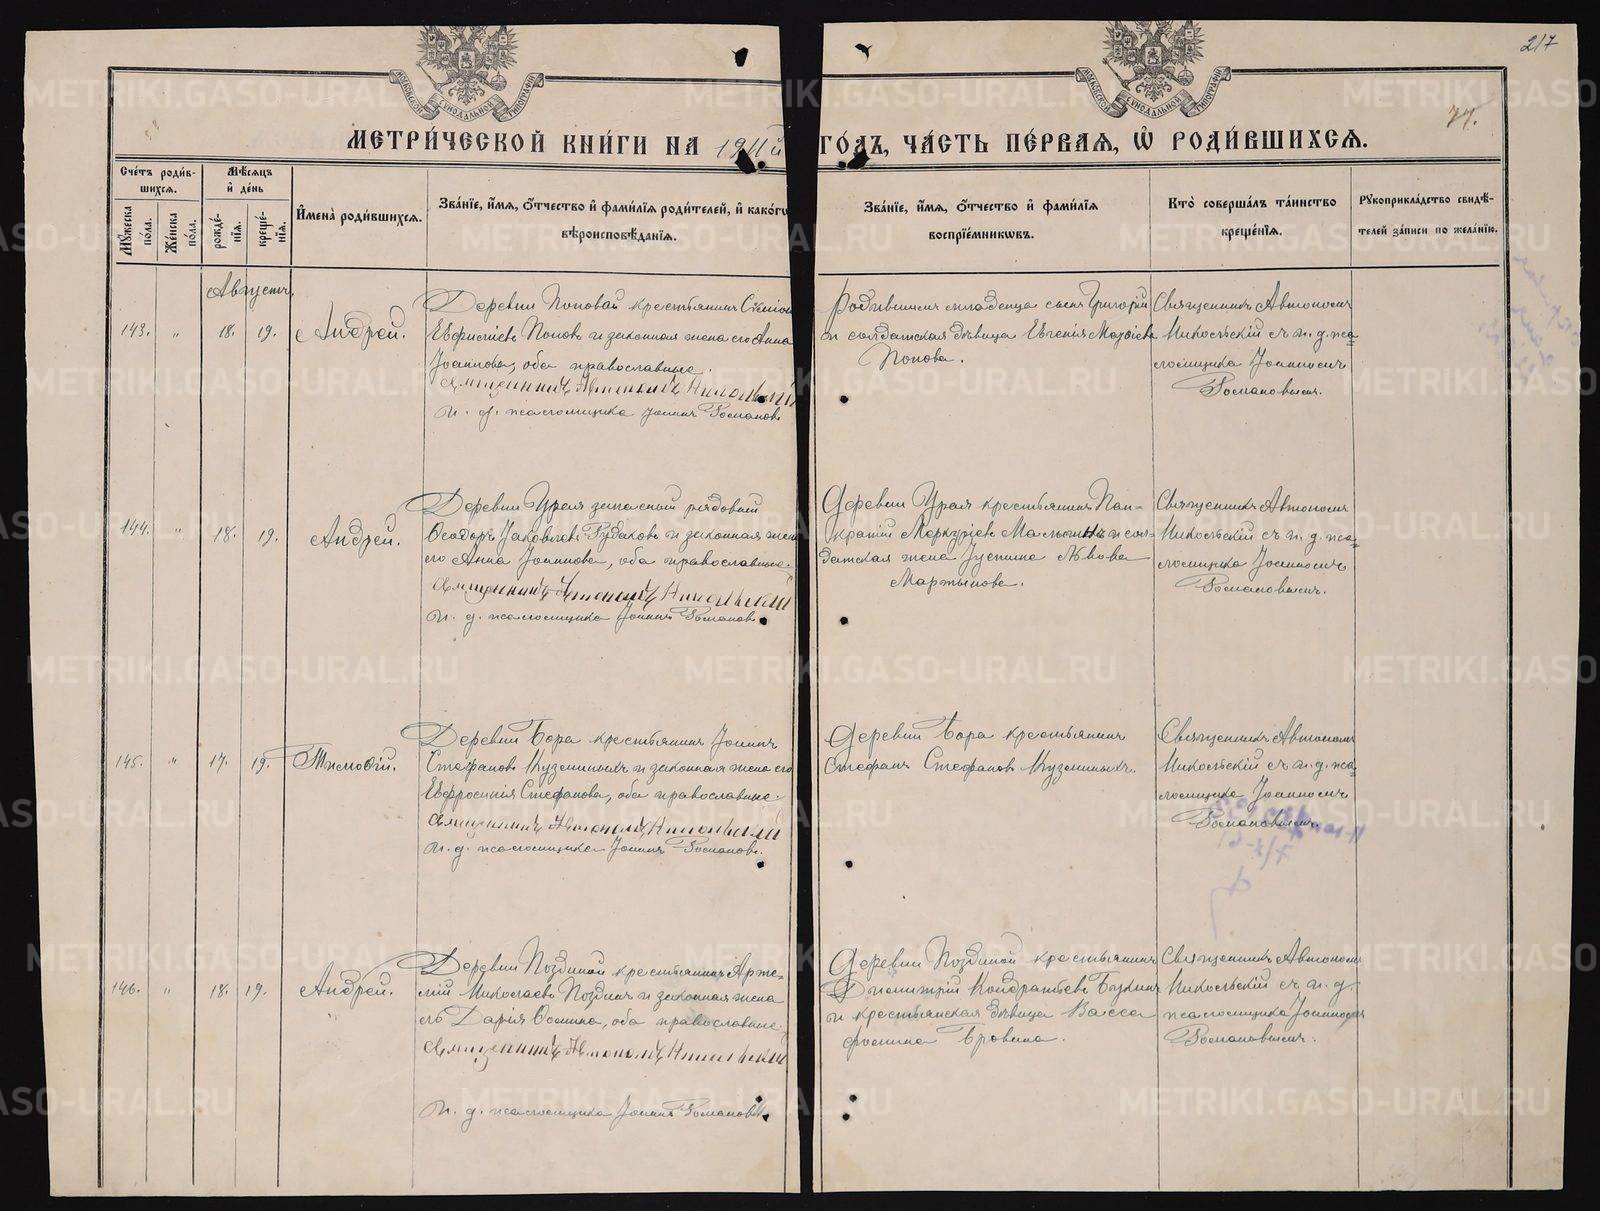 217
77.
МОСКОВСКОЙ СУНОДАЛЬНОЙ ТИПОГРАФІИ
МОСКОВСКОЙ СУНОДАЛЬНОЙ ТИПОГРАФІИ
МЕТРИ́ЧЕСКОЙ КНИ́ГИ НА 1911й ГО́ДЪ, ЧА́СТЬ ПЕ́РВАЯ, Ѡ҆ РОДИ́ВШИХСЯ.
Сче́тъ роди́в-
шихся.
Мꙋжеска по́ла.
Же́нска по́ла.
Мѣ́сяцъ и҆ де́нь
рожде́-нїя.
креще́-нїя.
И҆мена̀ роди́вшихся.
Зва́нїе, и҆́мя, ѻ҆́тчество и҆ фами́лїя роди́телей, и҆ како́гѡ
вѣроисповѣ́данїя.
Зва́нїе, и҆́мя, ѻ҆́тчество и҆ фами́лїя
воспрїе́мникѡвъ.
Кто̀ соверша́лъ та́инство
креще́нїя.
Рꙋкоприкла́дство свидѣ́-
телей за́писи по жела́нїю.
Августъ.
143. " 18. 19. Андрей.
Деревни Поповой крестьянинъ Симеон
Евфисіевъ Поповъ и законная жена его Анна
Іоаннова, оба православные.
Священникъ Автономъ Никольскій
и. д. псаломщика Іоаннъ Романовъ
Родившагося младенца сынъ Григорій
и солдатская дѣвица Евгенія Матѳіева
Попова.
Священникъ Автономъ
Никольскій съ и. д. пса-
ломщика Іоанномъ
Романовымъ.
144. " 18. 19. Андрей.
Деревни Урая запасный рядовый
Ѳеодоръ Іаковлевъ Рудаковъ и законная жена
его Анна Іоаннова, оба православные.
Священникъ Автономъ Никольскій
и. д. псаломщика Іоаннъ Романовъ.
Деревни Урая крестьянинъ Пан-
кратій Меркуріевъ и сол-
датская жена Іустина Львова
Мартынова.
Священникъ Автономъ
Никольскій съ и. д. пса-
ломщика Іоанномъ
Романовымъ.
145. " 17. 19. Тимоѳей.
Деревни Бора крестьянинъ Іоаннъ
Стефановъ Куземиныхъ и законная жена его
Евфросинія Стефанова, оба православные.
Священникъ Автономъ Никольскій
и. д. псаломщика Іоаннъ Романовъ.
Деревни Бора крестьянинъ
Стефанъ Стефановъ Куземиныхъ.
Священникъ Автономъ
Никольскій съ и. д. пса-
ломщика Іоанномъ
Романовымъ.
146. " 18. 19. Андрей.
Деревни Поздиной крестьянинъ Арте-
мій Николаевъ Поздинъ и законная жена
его Дарія Ѳомина, оба православные.
Священникъ Автономъ Никольскій
и. д. псаломщика Іоаннъ Романовъ.
Деревни Поздиной крестьянинъ
Димитрій Кондратьевъ Букинъ
и крестьянская дѣвица Васса
Ѳомина Бровина.
Священникъ Автономъ
Никольскій съ и. д.
псаломщика Іоанномъ
Романовымъ.
METRIKI.GASO-URAL.RU